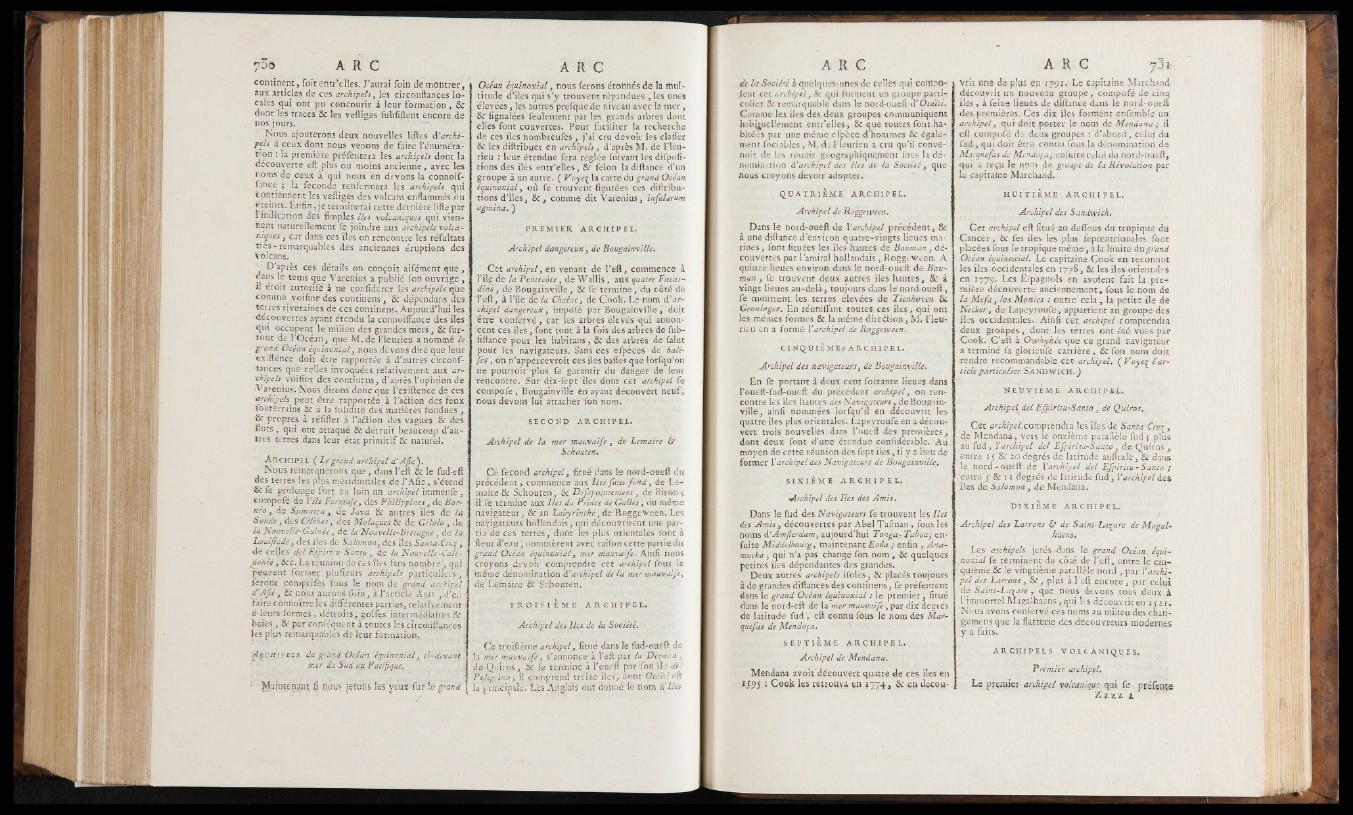 730 ARC
continent, ſoit entr'elles. J'aurai ſoin de montrer,
aux articles de ces archipels, les circonſtances lo-
cales qui ont pu concourir à leur formation, &
dont les traces & les veſtiges ſubſiſtent encore de
nos jours.
Nous ajouterons deux nouvelles liſtes d'archi-
pels à ceux dont nous venons de faire l'énuméra-
tion : la première préſentera les archipels dont la
découverte eſt plus ou moins ancienne, avec les
noms de ceux à qui nous en devons la connoiſ-
ſance ; la ſeconde renfermera les archipels qui
contiennent les veſtiges des volcans enflammés ou
éteints. Enfin, je terminerai cette dernière liſte par
l'indication des ſimples îles volcaniques qui vien-
nent naturellement ſe joindre aux archipels volca-
niques, car dans ces îles on rencontre les réſultats
très-remarquables des anciennes éruptions des
volcans.
D'après ces détails on conçoit aiſément que,
dans le tems que Varenius a publié ſon ouvrage,
il étoit autoriſé à ne conſidérer les archipels que
comme voiſins des continens, & dépendans des
terres riveraines de ces continens. Aujourd'hui les
découvertes ayant étendu la connoiſſance des îles
qui occupent le milieu des grandes mers, & ſur-
tout de l'Océan, que M. de Fleurieu a nommé le
grand Océan équinoxial, nous devons dire que leur
exiſtence doit être rapportée à d'autres circonſ-
tances que celles invoquées relativement aux ar-
chipels voiſins des continens, d'après l'opinion de
Varenius. Nous dirons donc que l'exiſtence de ces
archipels peut être rapportée à l'action des feux
ſouterrains & à la ſolidité des matières fondues,
& propres à réſiſter à l'action des vagues & des
flots, qui ont attaqué & détruit beaucoup d'au-
tres terres dans leur état primitif & naturel.
ARCHIPEL (Le grand archipel d'Aſie).
Nous remarquerons que, dans l'eſt & le ſud-eſt
des terres les plus méridionales de l'Aſie, s'étend
& ſe prolonge fort au loin un archipel immenſe,
compoſé de l'île Formoſe, des Philippines, de Bor-
néo, de Sumatra, de Java & autres îles de la
Sonde, des Célèbes, des Moluques & de Gilolo, de
la Nouvelle-Guinée, de la Nouvelle-Bretagne, de la
Louiſiade, des îles de Salomon, des îles Santa-Cruz,
de celles del Eſpiritu Santo, de la Nouvelle-Calé-
donie, &c. La réunion de ces îles ſans nombre, qui
peuvent former pluſieurs archipels particuliers,
ſeront compriſes ſous le nom de grand archipel
d'Aſie, & nous aurons ſoin, à l'article ASIE, d'en
faire connoître les différentes parties, relativement
à leurs formes, détroits, golfes intermédiaires &
baies, & par conſéquent à toutes les circonſtances
les plus remarquables de leur formation.
ARCHIPELS du grand Océan équinoxial, ci-devant
mer du Sud ou Pacifique.
Maintenant ſi nous jetons les yeux ſur le grand
ARC
Océan équinoxial, nous ſerons étonnés de la mul-
titude d'îles qui s'y trouvent répandues, les unes
élevées, les autres preſque de niveau avec la mer,
& ſignalées ſeulement par les grands arbres dont
elles ſont couvertes. Pour faciliter la recherche
de ces îles nombreuſes, j'ai cru devoir les claſſer
& les diſtribuer en archipels, d'après M. de Fleu-
rieu : leur étendue ſera réglée ſuivant les diſpoſi-
tions des îles entr'elles, & ſelon la diſtance d'un
groupe à un autre. (Voyez la carte du grand Océan
équinoxial, où ſe trouvent figurées ces diſtribu-
tions d'îles, &, comme dit Varenius, inſularum
agmina.)
PREMIER ARCHIPEL.
Archipel dangereux, de Bougainville.
Cet archipel, en venant de l'eſt, commence à
l'île de la Pentecôte, de Wallis, aux quatre Facar-
dins, de Bougainville, & ſe termine, du côté de
l'eſt, à l'île de la Chaîne, de Cook. Le nom d'ar-
chipel dangereux, impoſé par Bougainville, doit
être conſervé, car les arbres élevés qui annon-
cent ces îles, ſont tout à la fois des arbres de ſub-
ſiſtance pour les habitans, & des arbres de ſalut
pour les navigateurs. Sans ces eſpèces de bali-
ſes, on n'appercevroit ces îles baſſes que lorſqu'on
ne pourroit plus ſe garantir du danger de leur
rencontre. Sur dix-ſept îles dont cet archipel ſe
compoſe, Bougainville en ayant découvert neuf,
nous devons lui attacher ſon nom.
SECOND ARCHIPEL.
Archipel de la mer mauvaiſe, de Lemaire &
Schouten.
Ce ſecond archipel, ſitué dans le nord-oueſt du
précédent, commence aux îles ſans fond, de Le-
maire & Schouten, & Diſapointement, de Biron ;
il ſe termine aux îles du Prince de Galles, du même
navigateur, & au Labyrinthe, de Roggeween. Les
navigateurs hollandais, qui découvrirent une par-
tie de ces terres, dont les plus orientales ſont à
fleur d'eau, nommèrent avec raiſon cette partie du
grand Océan équinoxial, mer mauvaiſe. Ainſi nous
croyons devoir comprendre cet archipel ſous la
même dénomination d'archipel de la mer mauvaiſe,
de Lemaire & Schouten.
TROISIÈME ARCHIPEL.
Archipel des Iles de la Société.
Ce troiſième archipel, ſitué dans le ſud-oueſt de
la mer mauvaiſe, s'annonce à l'eſt par la Dezana,
de Quiros, & ſe termine à l'oueſt par ſon île de
Pelegrino ; il comprend treize îles, dont Otaïti eſt
la principale. Les Anglais ont donné le nom d'îles
ARC
de la Société à quelques-unes de celles qui compo-
ſent cet archipel, & qui forment un groupe parti-
culier & remarquable dans le nord-oueſt d'Otaïti.
Comme les îles des deux groupes communiquent
habituellement entr'elles, & que toutes ſont ha-
bitées par une même eſpèce d'hommes & égale-
ment ſociables, M. de Fleurieu a cru qu'il conve-
noit de les réunir géographiquement ſous la dé-
nomination d'archipel des îles de la Société, que
nous croyons devoir adopter.
QUATRIÈME ARCHIPEL.
Archipel de Roggeween.
Dans le nord-oueſt de l'archipel précédent, &
à une diſtance d'environ quatre-vingts lieues ma-
rines, ſont ſituées les îles hautes de Bauman, dé-
couvertes par l'amiral hollandais, Roggeween. A
quinze lieues environ dans le nord-oueſt de Bau-
man, ſe trouvent deux autres îles hautes, & à
vingt lieues au-delà, toujours dans le nord-oueſt,
ſe montrent les terres élevées de Tienhoven &
Groningue. En réuniſſant toutes ces îles, qui ont
les mêmes formes & la même direction, M. Fleu-
rieu en a formé l'archipel de Roggeween.
CINQUIÈME ARCHIPEL.
Archipel des navigateurs, de Bougainville.
En ſe portant à deux cent ſoixante lieues dans
l'oueſt-ſud-oueſt du précédent archipel, on ren-
contre les îles hautes des Navigateurs, de Bougain-
ville, ainſi nommées lorſqu'il en découvrit les
quatre îles plus orientales. Lapeyrouſe en a décou-
vert trois nouvelles dans l'oueſt des premières,
dont deux ſont d'une étendue conſidérable. Au
moyen de cette réunion des ſept îles, il y a lieu de
former l'archipel des Navigateurs de Bougainville.
SIXIÈME ARCHIPEL.
Archipel des Iles des Amis.
Dans le ſud des Navigateurs ſe trouvent les îles
des Amis, découvertes par Abel Taſman, ſous les
noms d'Amſterdam, aujourd'hui Tonga-Tabou ; en-
ſuite Middelbourg, maintenant Eoüa ; enfin, Ana-
mocka, qui n'a pas changé ſon nom, & quelques
petites îles dépendantes des grandes.
Deux autres archipels iſolés, & placés toujours
à de grandes diſtances des continens, ſe préſentent
dans le grand Océan équinoxial : le premier, ſitué
dans le nord-eſt de la mer mauvaiſe, par dix degrés
de latitude ſud, eſt connu ſous le nom des Mar-
queſas de Mendoça.
SEPTIÈME ARCHIPEL.
Archipel de Mendana.
Mendana avoit découvert quatre de ces îles en
1595 : Cook les retrouva en 1774, & en décou-
ARC 731
vrit une de plus en 1791. Le capitaine Marchand
découvrit un nouveau groupe, compoſé de cinq
îles, à ſeize lieues de diſtance dans le nord-oueſt
des premières. Ces dix îles forment enſemble un
archipel, qui doit porter le nom de Mendana ; il
eſt compoſé de deux groupes : d'abord, celui du
ſud, qui doit être connu ſous la dénomination de
Marqueſas de Mendoça ; enſuite celui du nord-oueſt,
qui a reçu le nom de groupe de la Révolution par
le capitaine Marchand.
HUITIÈME ARCHIPEL.
Archipel des Sandwich.
Cet archipel eſt ſitué au deſſous du tropique du
Cancer, & ſes îles les plus ſeptentrionales ſont
placées ſous le tropique même, à la limite du grand
Océan équinoxial. Le capitaine Cook en reconnut
les îles occidentales en 1778, & les îles orientales
en 1779. Les Eſpagnols en avoient fait la pre-
mière découverte anciennement, ſous le nom de
la Meſa, los Monjes : outre cela, la petite île de
Necker, de Lapeyrouſe, appartient au groupe des
îles occidentales. Ainſi cet archipel comprendra
deux groupes, dont les terres ont été vues par
Cook. C'eſt à Owhyhée que ce grand navigateur
a terminé ſa glorieuſe carrière, & ſon nom doit
rendre recommandable cet archipel. (Voyez l'ar-
ticle particulier SANDWICH.)
NEUVIÈME ARCHIPEL.
Archipel del Eſpiritu-Santo, de Quiros.
Cet archipel comprendra les îles de Santa-Cruz,
de Mendana, vers le onzième parallèle ſud ; plus
au ſud, l'archipel del Eſpiritu-Santo, de Quiros,
entre 15 & 20 degrés de latitude auſtrale, & dans
le nord-oueſt de l'archipel del Eſpiritu-Santo ;
entre 5 & 11 degrés de latitude ſud, l'archipel des
îles de Salomon, de Mendana.
DIXIÈME ARCHIPEL.
Archipel des Larrons & de Saint-Lazare de Magal-
haens.
Les archipels jetés dans le grand Océan équi-
noxial ſe terminent du côté de l'eſt, entre le cin-
quième & le vingtième parallèle nord, par l'archi-
pel des Larrons, &, plus à l'eſt encore, par celui
de Saint-Lazare, que nous devons tous deux à
l'immortel Magalhaens, qui les découvrit en 1521.
Nous avons conſervé ces noms au milieu des chan-
gemens que la flatterie des découvreurs modernes
y a faits.
ARCHIPELS VOLCANIQUES.
Premier archipel.
Le premier archipel volcanique qui ſe préſente
Zzzz 2